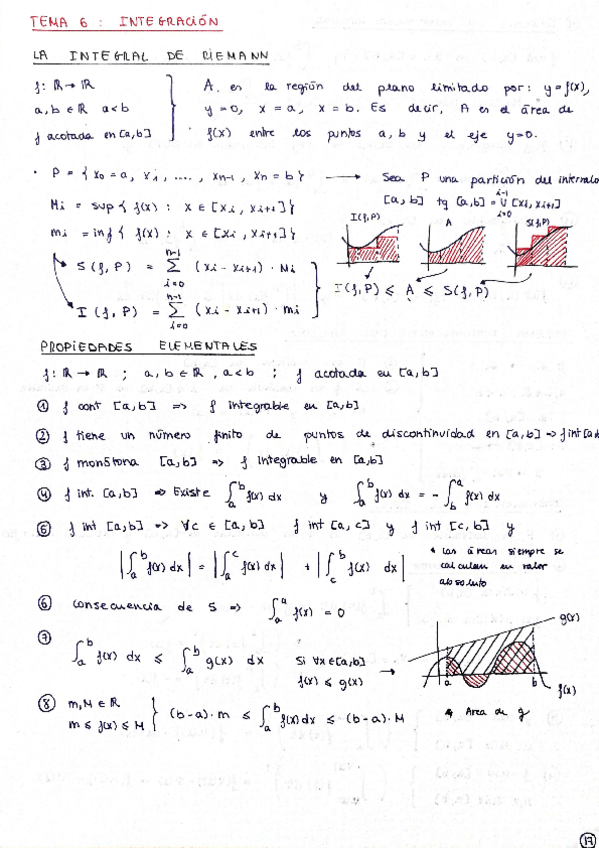 TEMA 6 : INTEGRACIÓN
LA INTEGRAL DE RIEMANN
f: ℝ → ℝ
a, b ∈ ℝ a < b
f acotada en [a,b]
A es la región del plano limitado por: y = f(x),
y = 0, x = a, x = b. Es decir, A es el área de
f(x) entre los puntos a, b y el eje y=0.
· P = { x₀ = a, x₁, ...., xₙ₋₁, xₙ = b } → Sea P una partición del intervalo
[a,b] tq [a,b] = ∪ᵢ₌₀ⁱ⁻¹ [xᵢ, xᵢ₊₁]
Mi = sup { f(x) : x ∈ [xᵢ, xᵢ₊₁] }
mi = inf { f(x) : x ∈ [xᵢ, xᵢ₊₁] }
I(f,P) A S(f,P)
S(f,P) = ∑ᵢ₌₀ⁿ⁻¹ (xᵢ - xᵢ₊₁) · Mi
I(f,P) = ∑ᵢ₌₀ⁿ⁻¹ (xᵢ - xᵢ₊₁) · mi
I(f,P) ≤ A ≤ S(f,P)
PROPIEDADES ELEMENTALES
f: ℝ → ℝ ; a, b ∈ ℝ, a < b ; f acotada en [a,b]
① f cont [a,b] => f integrable en [a,b]
② f tiene un número finito de puntos de discontinvidad en [a,b] => f int [a,b
③ f monótona [a,b] => f integrable en [a,b]
④ f int. [a,b] => Existe ∫ₐᵇ f(x) dx y ∫ₐᵇ f(x) dx = - ∫_b^a f(x) dx
⑤ f int [a,b] => ∀c ∈ [a,b] f int [a,c] y f int [c,b] y
|∫ₐᵇ f(x) dx| = |∫ₐᶜ f(x) dx| + |∫_c^b f(x) dx|
* Las áreas siempre se
calculan en valor
absoluto
⑥ consecuencia de 5 => ∫ₐᵃ f(x) = 0
⑦ ∫ₐᵇ f(x) dx ≤ ∫ₐᵇ g(x) dx si ∀x∈[a,b]
f(x) ≤ g(x) →
g(x)
a b f(x)
* Area de g
⑧ m, M ∈ ℝ
m ≤ f(x) ≤ M } (b-a)·m ≤ ∫ₐᵇ f(x)dx ≤ (b-a)·M
17